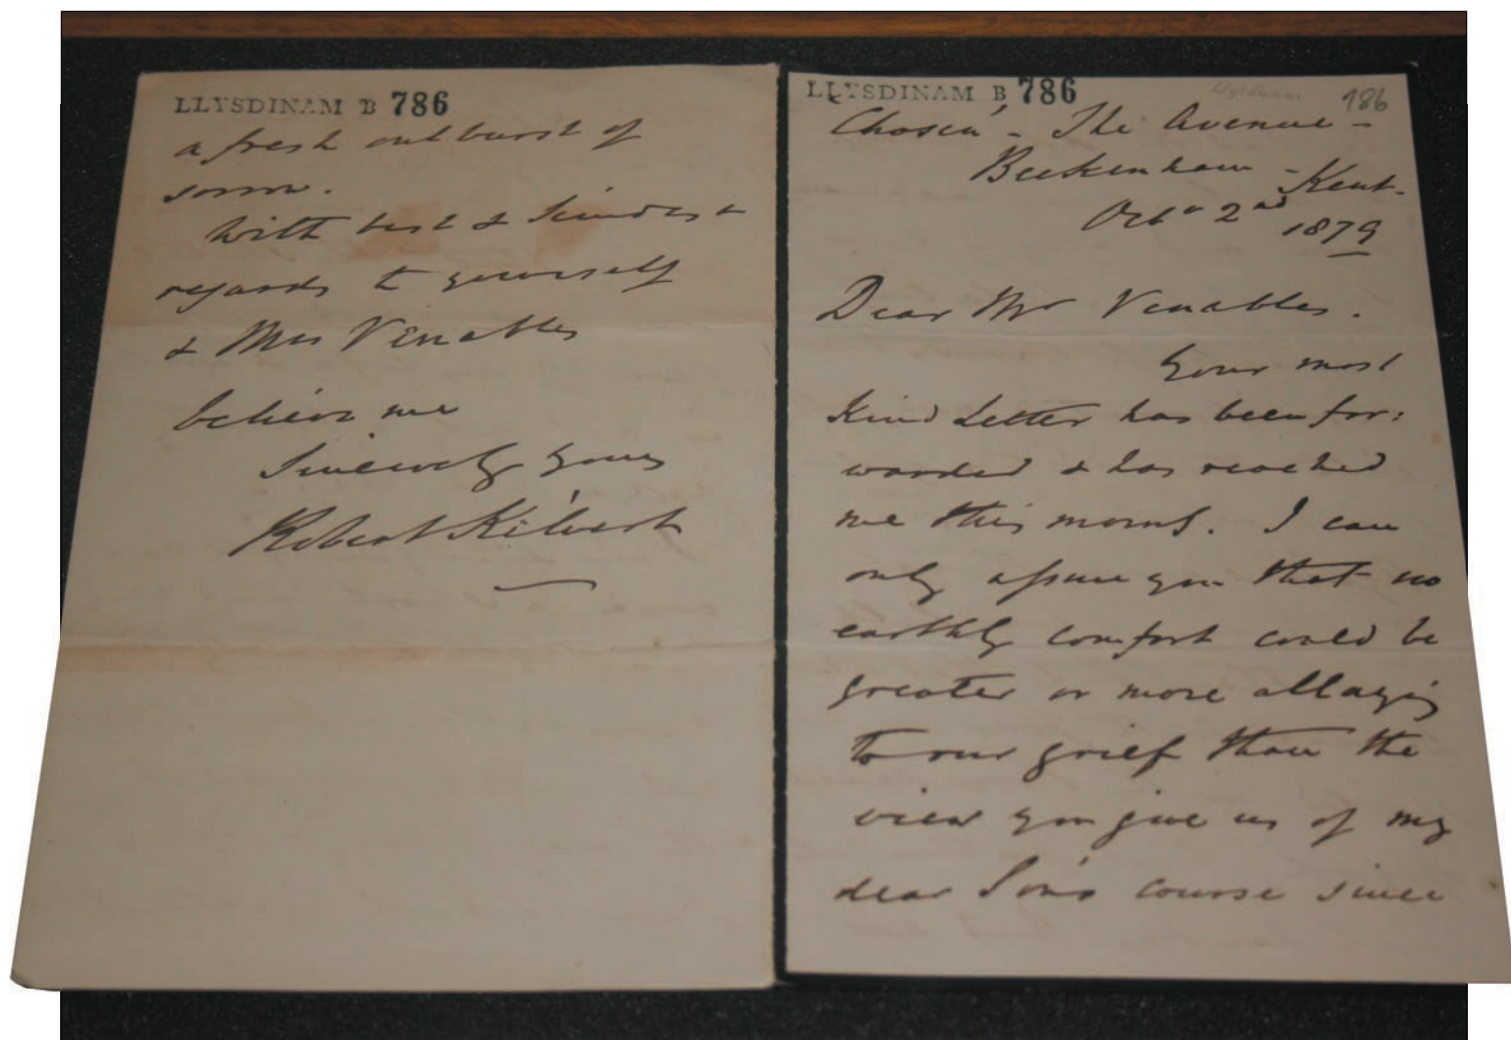 LLYSDINAM B 786
a fresh outburst of
sorrow.
With best & kindest
regards to yourself
& Mrs Venables
believe me
Sincerely yours
Robert Kilvert
LLYSDINAM B 786
Llysdinam 786
The Avenue -
Beckenham - Kent -
Octr 2nd 1879
Dear Mr Venables.
Your most
Kind Letter has been for:
warded & has reached
me this morng. I can
only assure you that no
earthly comfort could be
greater or more allaying
to our grief than the
view you give us of my
dear Son's course since